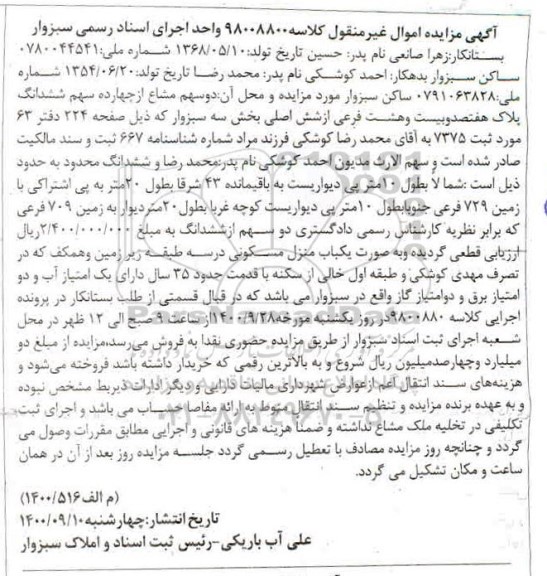 آگهی مزایده اموال غیرمنقول کلاسه ۹۸۰۰۸۸۰۰ واحد اجرای اسناد رسمی سبزوار
بستانکار:زهرا صانعی نام پدر: حسین تاریخ تولد:۱۳۶۸/۰۵/۱۰ شماره ملی:۰۷۸۰۰۴۴۵۴۱
ساکن سبزوار بدهکار: احمد کوشکی نام پدر: محمد رضا تاریخ تولد:۱۳۵۴/۰۶/۲۰ شماره
ملی:۰۷۹۱۰۶۳۸۲۸ ساکن سبزوار مورد مزایده و محل آن:دوسهم مشاع ازچهارده سهم ششدانگ
پلاک هفتصدوبیست وهشت فرعی ازشش اصلی بخش سه سبزوار که ذیل صفحه ۲۲۴ دفتر ۶۳
مورد ثبت ۷۳۷۵ به آقای محمد رضا کوشکی فرزند مراد شماره شناسنامه ۶۶۷ ثبت و سند مالکیت
صادر شده است و سهم الارث مدیون احمد کوشکی نام پدر:محمد رضا و ششدانگ محدود به حدود
ذیل است :شما لاً بطول ۱۰متر پی دیواریست به باقیمانده ۴۳ شرقا بطول ۲۰متر به پی اشتراکی با
زمین ۷۲۹ فرعی جنوبابطول ۱۰متر پی دیواریست کوچه غربا بطول ۲۰متر دیوار به زمین ۷۰۹ فرعی
که برابر نظریه کارشناس رسمی دادگستری دو سهم ازششدانگ به مبلغ ۲/۴۰۰/۰۰۰/۰۰۰ریال
ارزیابی قطعی گردیده وبه صورت یکباب منزل مسکونی درسه طبقه زیر زمین وهمکف که در
تصرف مهدی کوشکی و طبقه اول خالی از سکنه با قدمت حدود ۳۵ سال دارای یک امتیاز آب و دو
امتیاز برق و دوامتیاز گاز واقع در سبزوار می باشد که در قبال قسمتی از طلب بستانکار در پرونده
اجرایی کلاسه ۹۸۰۰۸۸۰در روز یکشنبه مورخه۱۴۰۰/۹/۲۸از ساعت ۹ صبح الی ۱۲ ظهر در محل
شعبه اجرای ثبت اسناد سبزوار از طریق مزایده حضوری نقدا به فروش می‌رسد،مزایده از مبلغ دو
میلیارد وچهارصدمیلیون ریال شروع و به بالاترین رقمی که خریدار داشته باشد فروخته می‌شود و
هزینه‌های سند انتقال اعم ازعوارض شهرداری مالیات دارایی و دیگر ادارات ذیربط مشخص نبوده
و به عهده برنده مزایده و تنظیم سند انتقال منوط به ارائه مفاصا حساب می باشد و اجرای ثبت
تکلیفی در تخلیه ملک مشاع نداشته و ضمناً هزینه های قانونی و اجرایی مطابق مقررات وصول می
گردد و چنانچه روز مزایده مصادف با تعطیل رسمی گردد جلسه مزایده روز بعد از آن در همان
ساعت و مکان تشکیل می گردد.
(م الف۱۴۰۰/۵۱۶)
تاریخ انتشار:چهارشنبه۱۴۰۰/۰۹/۱۰
علی آب باریکی-رئیس ثبت اسناد و املاک سبزوار